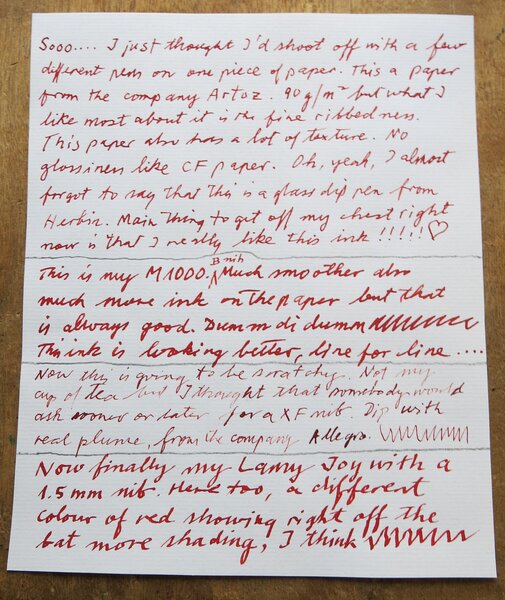 Sooo.... I just thought I'd shoot off with a few
different pens on one piece of paper. This a paper
from the company Artoz. 90g/m² but what I
like most about it is the fine ribbedness.
This paper also has a lot of texture. No
glossiness like CF paper. Oh, yeah, I almost
forgot to say that this is a glass dip pen from
Herbin. Main thing to get off my chest right
now is that I really like this ink !!!!! ♡
This is my M1000. B nib Much smoother also
much more ink on the paper but that
is always good. Dumm di dumm
This ink is looking better, line for line ....
Now this is going to be scratchy. Not my
cup of tea but I thought that somebody would
ask sooner or later for a XF nib. Dip with
real plume, from the company Allegro.
Now finally my Lamy Joy with a
1.5 mm nib. Here too, a different
colour of red showing right off the
bat more shading, I think